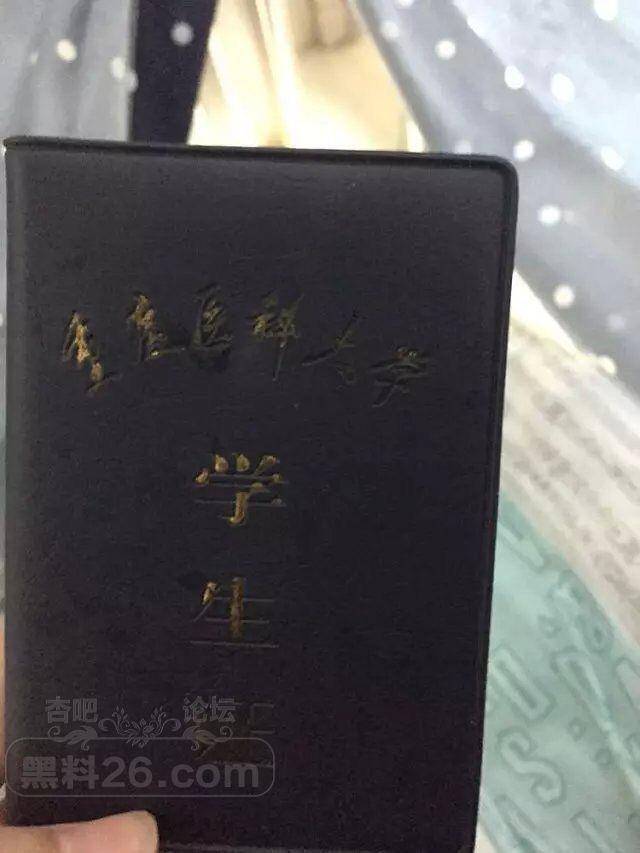 重庆医科大学
学
生
证
杏吧 论坛
黑料26.com